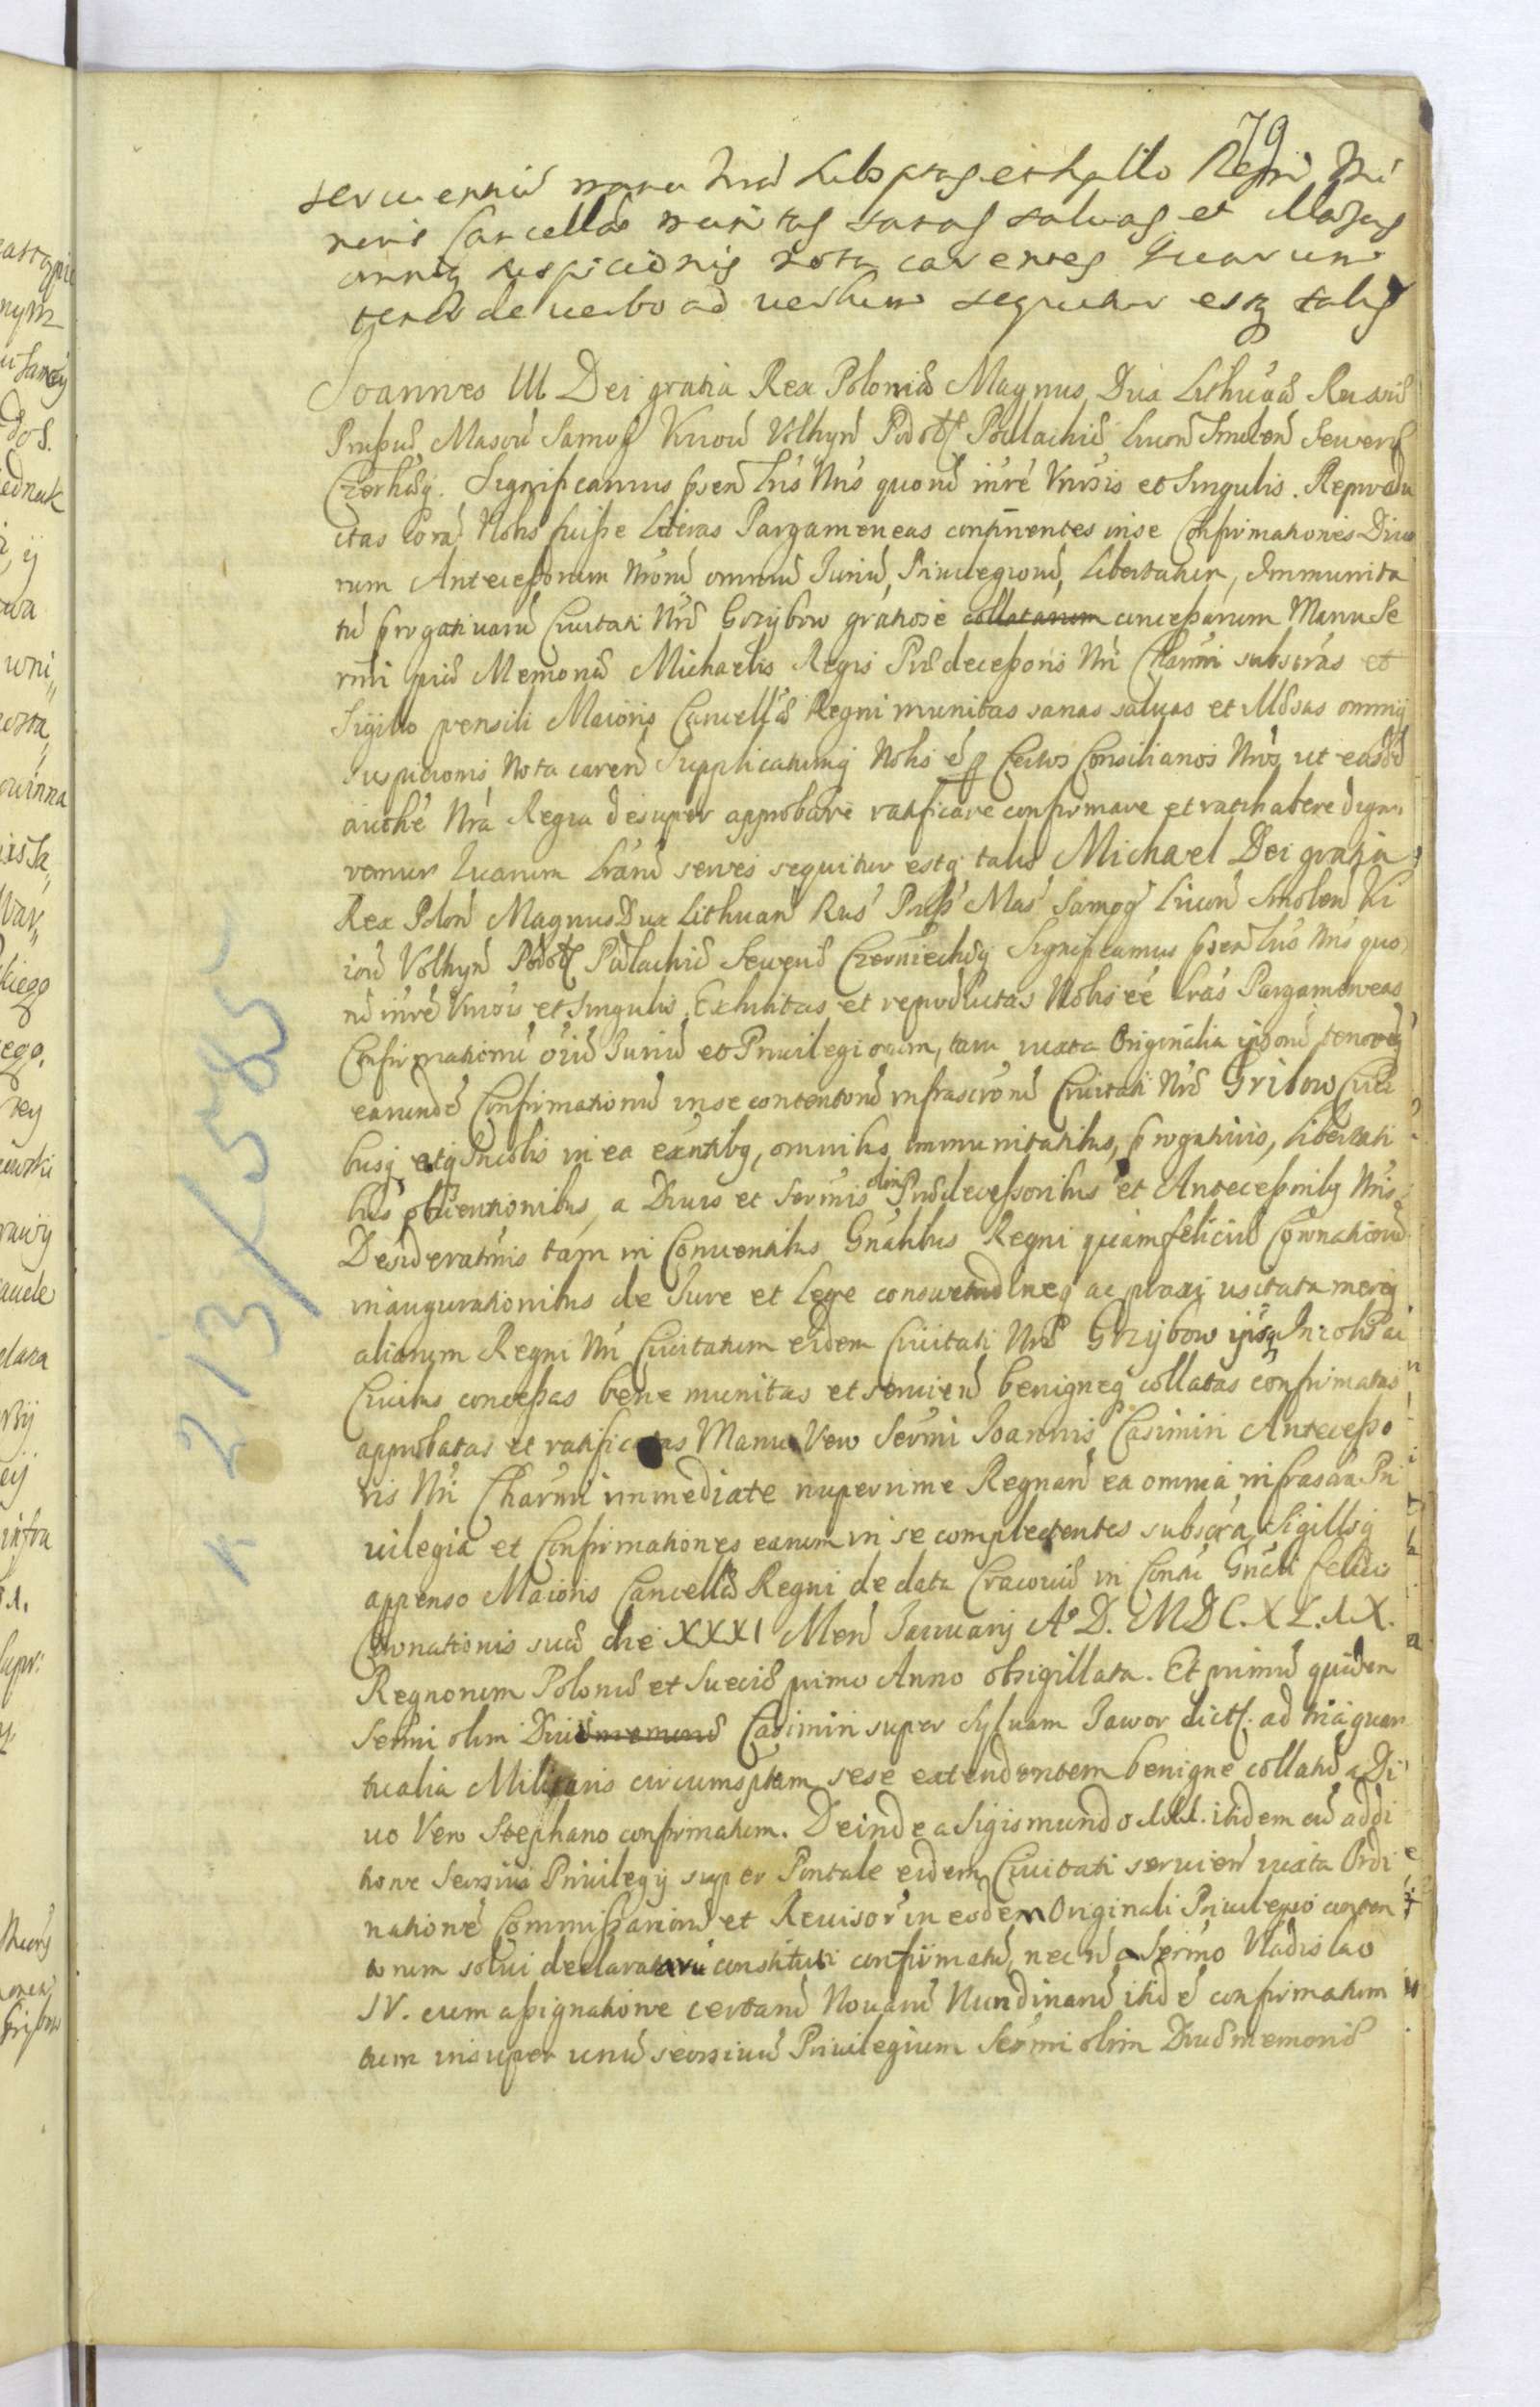 79
seruiennũ manu Nrã subsptas et sigillo Regni Mi
noris Cancellæ munitas sanas saluas et illæsas
omniq suspicionis nota carentes Quarum
tenor de verbo ad verbum sequitur estq talis
Joannes III Dei gratia Rex Poloniæ Magnus Dux Lithuaæ Russiæ
Prussiæ, Masoviæ Samog Kijoviæ Volhyn Podol Podlachiæ Livon Smolen Severiæ
Czerhoq. Significamus psen Lris Nris quorũ inre Vnũsis et Singulis. Reprodu
ctas Corã Nobis fuisse Literas Pargameneas continentes in se Confirmationes Diuo
rum Antecessorum Nrorũ omniũ Juriũ, Priuilegiorũ, Libertatum, Immunita
tũ prrogatiuarũ Ciuitati Nræ Grzybow gratiose collatarum concessarum Manu Se
rmi piæ Memoriæ Michaelis Regis Prædecessoris Nri Charmi subscras et
Sigillo pensili Maioris Cancellæ Regni munitas sanas saluas et illæsas omniq
suspicionis Nota caren Supplicatumq Nobis é p Certos Consiliarios Nros ut easdẽ
authẽ Nrã Regia desuper approbare ratificare confirmare et ratihabere digna
remur Quarum Lrarũ series sequitur estq talis Michael Dei gratia
Rex Polon Magnus Dux Lithuan Rus Pruss Mas Samog Livon Smolen Ki
iov Volhyn Podol Podlachiæ Severiæ Czerniechoq Significamus psen Lris Nris quo
rũ inrẽ Vnũsis et Singulis Exhibitas et reproductas Nobis eé Lras Pargameneas
Confirmationũ oiũ Juriũ et Priuilegiorum, tam iuxta Originalia ipsorũ tenoreq
earundẽ Confirmationũ in se contentorũ infrascrorũ Ciuitati Nræ Gribow Ciui
busq atq Incolis in ea exntibq, omnibs immunitatibus, prrogatiuis, Libertati
bus obuentionibus, a Diuis et Sermis olim Prædecessoribus et Antecessoribq Nris
Desideratmis tam in Conuentibus Gnalibus Regni quam felicium Coronationũ
inaugurationibus de Iure et Lege consuetudineq ac praxi usitata moreq
aliarum Regni Nri Ciuitatum eidem Ciuitati Nræ Grzybow ipsisq Incolis ac
Ciuibus concessas bene munitas et seruien benigneq collatas confirmatas
approbatas et ratificatas Manu Vero Sermi Joannis Casimiri Antecesso
ris Nri Charmi immediate nuperrime Regnan ea omnia infrascra Pri
uilegia et Confirmationes earum in se complectentes subscra Sigilloq
appenso Maioris Cancellæ Regni de data Cracouiæ in Contu Gnali felicis
Coronationis suæ die XXXI Men Januarij A° D. MDC.XL.IX.
Regnorum Poloniæ et Sueciæ primo Anno obsigillata. Et primũ quidem
Sermi olim Diui memoriæ Casimiri super syluam Jawor dict ad tria quar
tualia Miliaris circumsptam sese extendentem benigne collatũ a Di
uo Vero Stephano confirmatum. Deinde a Sigismundo III. itidem cũ addi
tione Seorsiui Priuilegij super Pontale eidem Ciuitati seruien iuxta Ordi
nationẽ Commissariorũ et Reuisorũ in eodem Originali Priuilegio conten
torum solui declaratarũ constituti confirmatũ, necnõ a Sermo Vladislao
IV. cum assignatione certarũ Nouarũ Nundinarũ itidẽ confirmatum
tum insuper unũ seorsiuũ Priuilegium Sermi olim Diuæ memoriæ
K 213/585